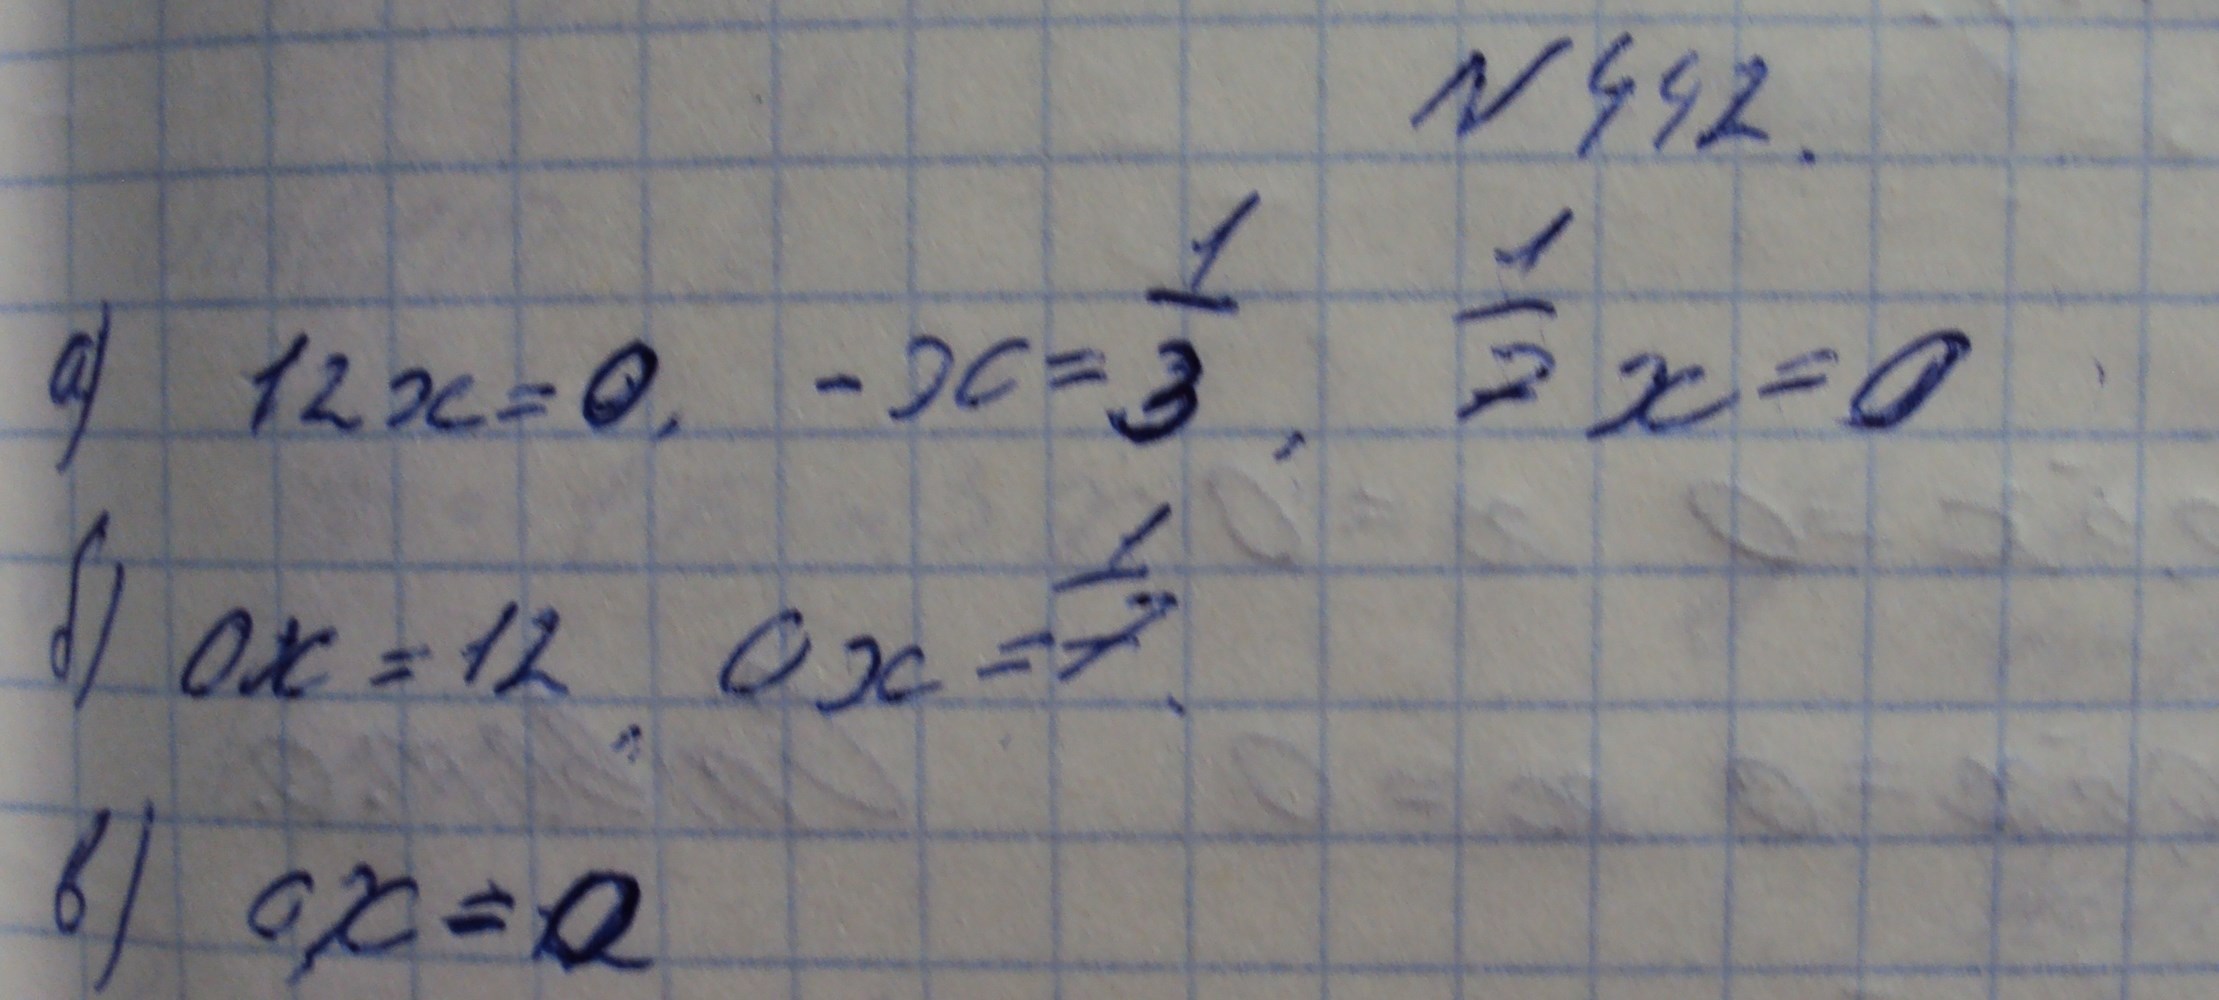 N 442.
а) 12x=0, -x=1/3, 1/7 x=0
б) 0x=12, 0x=1/7.
в) 0x=0